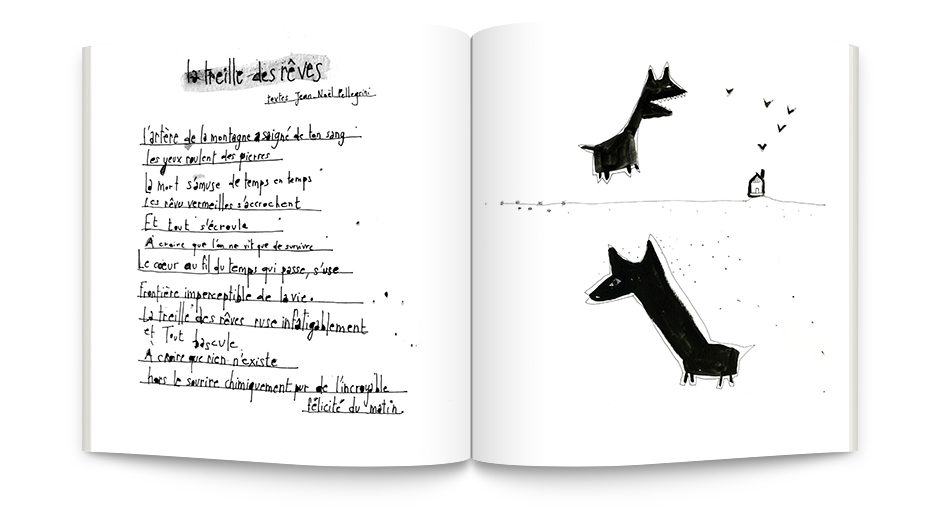 la treille des rêves
textes Jean-Noël Pellegrini
L'artère de la montagne a saigné de ton sang
les yeux roulent des pierres
La mort s'amuse de temps en temps
Les rêves vermeilles s'accrochent
Et tout s'écroula
À croire que l'on ne vit que de survivre
Le cœur au fil du temps qui passe, s'use
Frontière imperceptible de la vie.
La treille des rêves ruse infatigablement
et Tout bascule
À croire que rien n'existe
hors le sourire chimiquement pur de l'incroyable
félicité du matin.